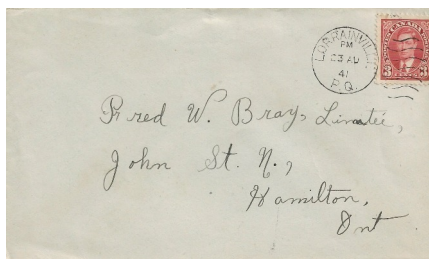 LORRAINVILLE
PM
23 AU
41
P.Q.
CANADA
3 3
Fred W. Bray, Limitée,
John St. N.,
Hamilton,
Ont